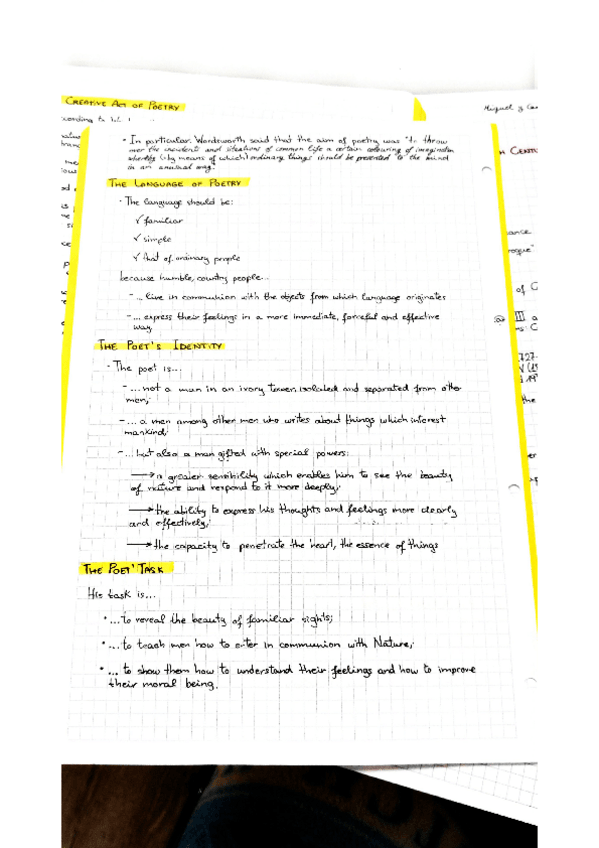 CREATIVE ACT OF POETRY
Miguel y
• In particular Wordsworth said that the aim of poetry was "to throw
over the incidents and situations of common life a certain colouring of imagination
whereby (by means of which) ordinary things should be presented to the mind
in an unusual way.
THE LANGUAGE OF POETRY
• The language should be:
✓ familiar
✓ simple
✓ that of ordinary people
because humble, country people...
- ... live in communion with the objects from which language originates
- ... express their feelings in a more immediate, forceful and effective
way.
THE POET'S IDENTITY
• The poet is...
- ... not a man in an ivory tower, isolated and separated from other
men;
- ... a man among other men who writes about things which interest
mankind;
- ... but also a man gifted with special powers:
→ a greater sensibility which enables him to see the beauty
of nature and respond to it more deeply;
→ the ability to express his thoughts and feelings more clearly
and effectively;
→ the capacity to penetrate the heart, the essence of things
THE POET' TASK
His task is...
• ... to reveal the beauty of familiar sights;
• ... to teach men how to enter in communion with Nature;
• ... to show them how to understand their feelings and how to improve
their moral being.